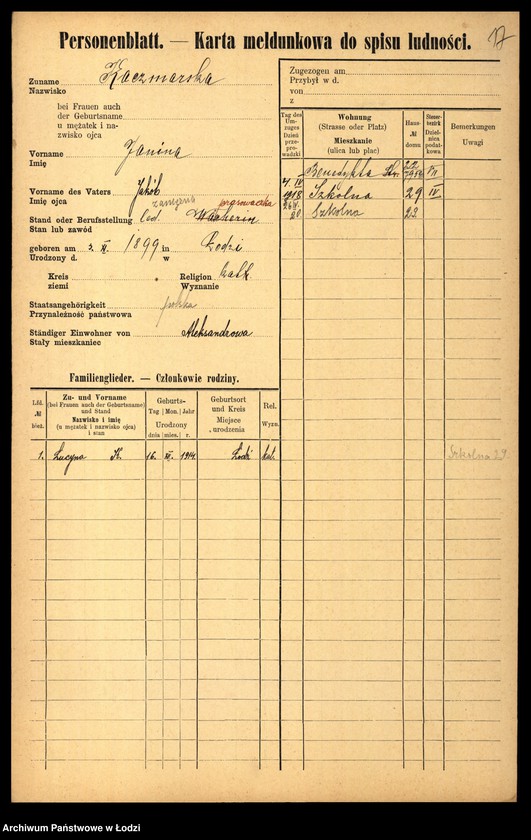 Personenblatt. — Karta meldunkowa do spisu ludności.
17
Zuname Kaczmarska
Nazwisko
bei Frauen auch
der Geburtsname
u mężatek i na-
zwisko ojca
Vorname Janina
Imię
Vorname des Vaters Jakób
Imię ojca
Stand oder Berufsstellung led.
Stan lub zawód
geboren am 3. XI. 1899 in Łodzi
Urodzony d. w
Kreis Religion kath.
ziemi Wyznanie
Staatsangehörigkeit polska
Przynależność państwowa
Ständiger Einwohner von Aleksandrowa
Stały mieszkaniec
Zugezogen am
Przybył w d.
von
z
Tag des Um-zuges Dzień prze-prowadzki
Wohnung (Strasse oder Platz) Mieszkanie (ulica lub plac)
Haus- № domu
Steuer-bezirk Dziel-nica podat-kowa
Bemerkungen Uwagi
Benedykta 22
4. IV 1918 Szkolna 29 IV
20. Szkolna 23
Familienglieder. — Członkowie rodziny.
Lfd. № bież.
Zu- und Vorname (bei Frauen auch der Geburtsname) und Stand Nazwisko i imię (u mężatek i nazwisko ojca) i stan
Geburts- Tag Mon. Jahr Urodzony dnia mies. r.
Geburtsort und Kreis Miejsce urodzenia
Rel. Wyzn.
1. Lucyna K. 16. XII. 1914 Łódź kat. Szkolna 23
Archiwum Państwowe w Łodzi